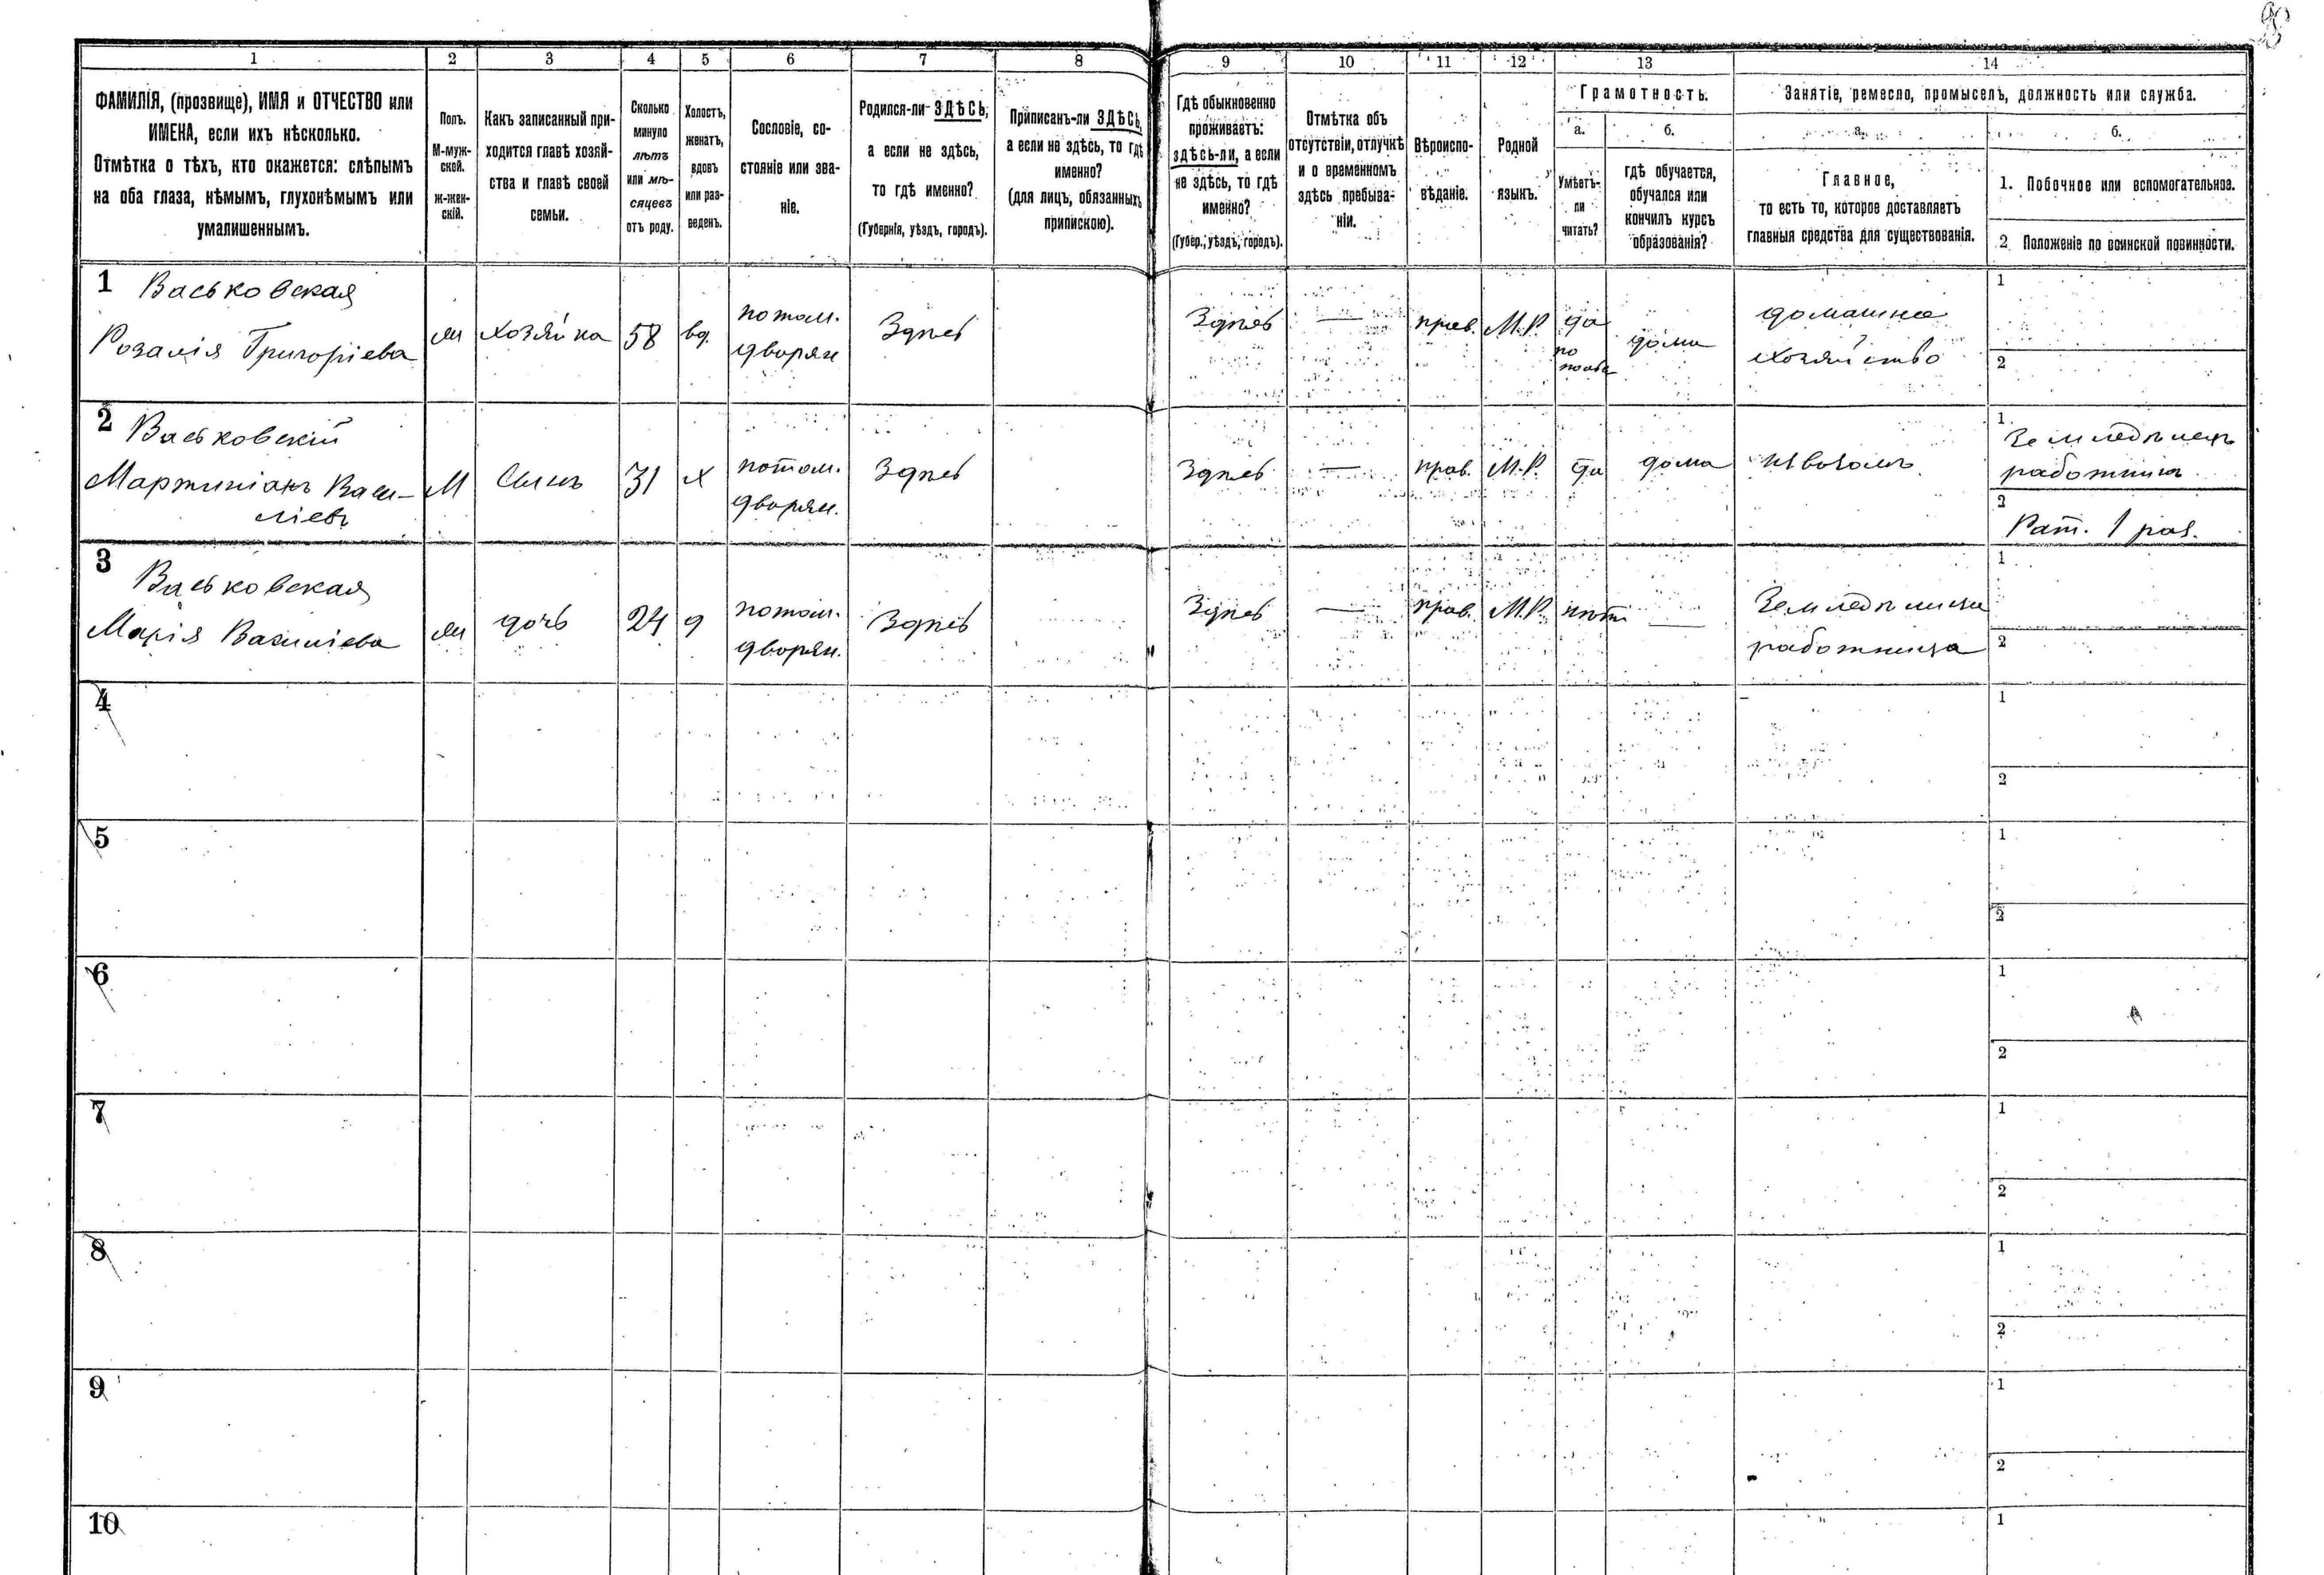 1 2 3 4 5 6 7 8 9 10 11 12 13 14
ФАМИЛІЯ, (прозвище), ИМЯ и ОТЧЕСТВО или
ИМЕНА, если ихъ нѣсколько.
Отмѣтка о тѣхъ, кто окажется: слѣпымъ
на оба глаза, нѣмымъ, глухонѣмымъ или
умалишеннымъ.
Полъ.
М-муж-
ской.
ж-жен-
скій.
Какъ записанный при-
ходится главѣ хозяй-
ства и главѣ своей
семьи.
Сколько
минуло
лѣтъ
или мѣ-
сяцевъ
отъ роду.
Холостъ,
женатъ,
вдовъ
или раз-
веденъ.
Сословіе, со-
стояніе или зва-
ніе.
Родился-ли ЗДѢСЬ,
а если не здѣсь,
то гдѣ именно?
(Губернія, уѣздъ, городъ).
Приписанъ-ли ЗДѢСЬ,
а если не здѣсь, то гдѣ
именно?
(для лицъ, обязанныхъ
припискою).
Гдѣ обыкновенно
проживаетъ:
здѣсь-ли, а если
не здѣсь, то гдѣ
именно?
(Губер., уѣздъ, городъ).
Отмѣтка объ
отсутствіи, отлучкѣ
и о временномъ
здѣсь пребыва-
ніи.
Вѣроиспо-
вѣданіе.
Родной
языкъ.
Грамотность.
а.
Умѣетъ-
ли
читать?
б.
гдѣ обучается,
обучался или
кончилъ курсъ
образованія?
Занятіе, ремесло, промыселъ, должность или служба.
а.
Главное,
то есть то, которое доставляетъ
главныя средства для существованія.
б.
1. Побочное или вспомогательное.
2 Положеніе по воинской повинности.
1 Васьковская
Розалія Григоріева
ж
хозяйка
58
вд.
потом.
дворян
Здѣсь
Здѣсь
—
прав.
М.Р.
да
по
дома
домашнее
хозяйство
1
2
2 Васьковскій
Мартиніанъ Васи-
ліевъ
М
Сынъ
31
х
потом.
дворян.
Здѣсь
Здѣсь
—
прав.
М.Р.
да
дома
извозомъ
1
Земледѣлецъ
работникъ
2
Рат. 1 раз.
3 Васьковская
Марія Василіева
ж
дочь
24
д
потом.
дворян.
Здѣсь
Здѣсь
—
прав.
М.Р.
нѣтъ
—
Земледѣлица
работница
1
2
4
1
2
5
1
2
6
1
2
7
1
2
8
1
2
9
1
2
10
1